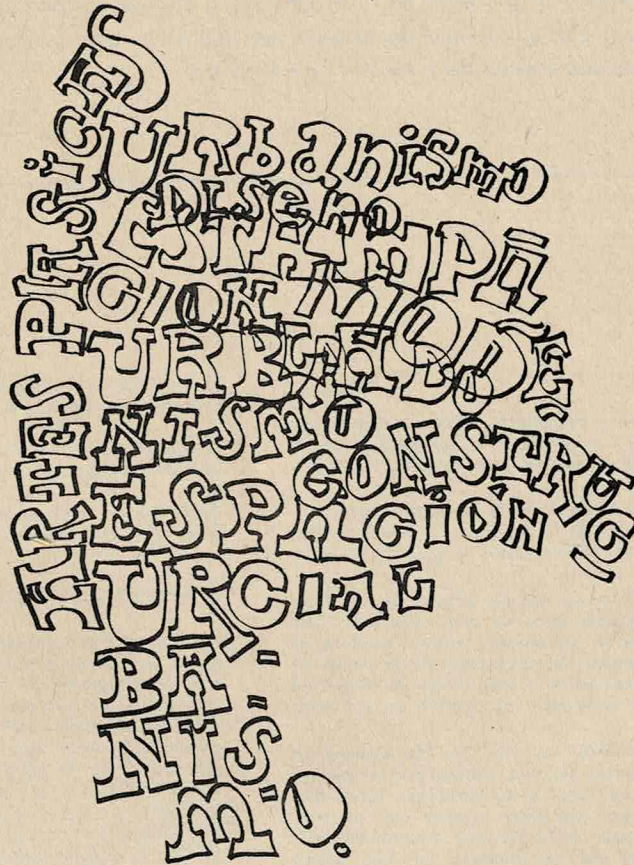 ARTES PLASTICAS
URbanismo
DISENO
ESTAMPA
CION MODE
URBA LADO
NISMO CONSTRUC
ESPA CIÓN
UR- CIAL
BA-
NIS
MO.